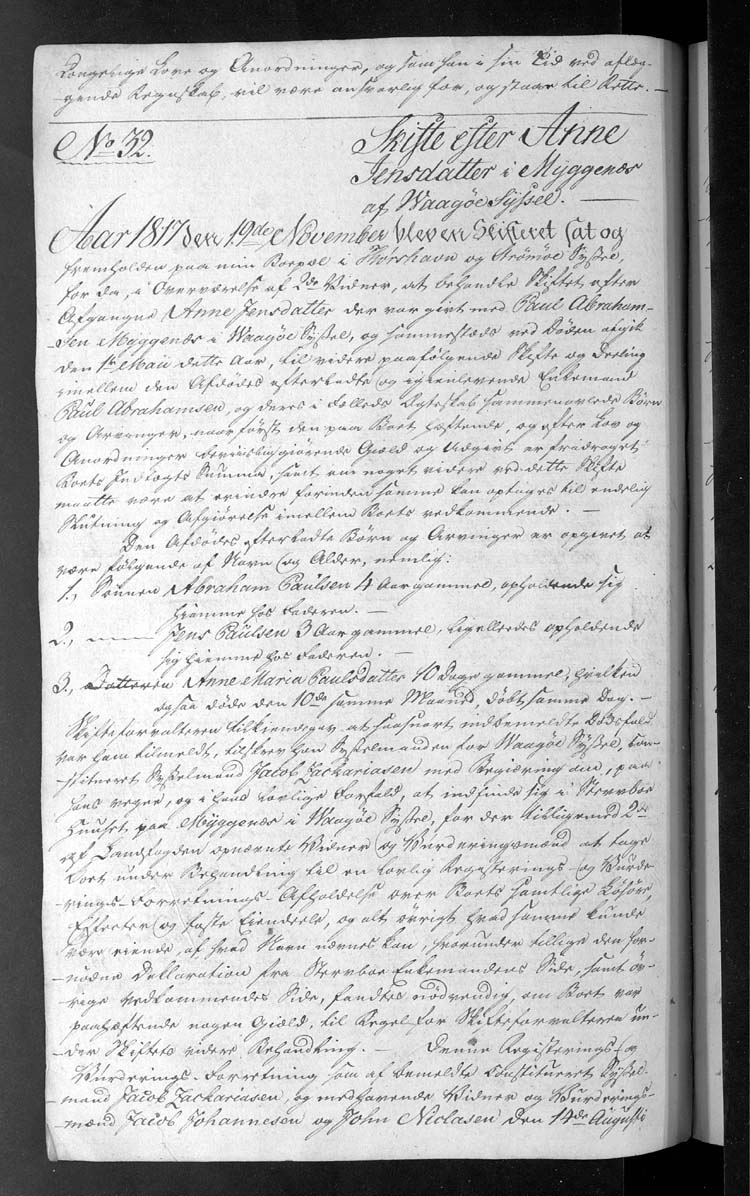 Kongelige Love og Anordninger, og som han i sin Tid ved aflæg-
-gende Regnskab, vil være ansvarlig for, og staae til Rette. -
No 32.
Skifte efter Anne
Jensdatter i Myggenæs
af Waagöe Sÿssel. -
Aar 1817 den 19de November blev en Skifteret sat og
fremholden paa min Boepæl i Thorshavn og Strömöe Sÿssel,
for da, i Overværelse af 2de Vidner, at behandle Skiftet efter
Afgangne Anne Jensdatter der var givt med Paul Abraham-
-sen Myggenæs i Waagöe Sÿssel, og sammestæds ved Döden afgik
den 1te Maii dette Aar, til videre paafölgende Skifte og Deeling
imellem den Afdödes efterladte og igienlevende Enkemand
Paul Abrahamsen, og deres i Fælleds Ægteskab sammenavlede Börn
og Arvinger, naar först den paa Boet hæftende, og efter Lov og
Anordninger beviisliggiörende Giæld og Udgivt er fradraget
Boets Indtægts Summa, samt om noget videre ved dette Skifte
maatte være at erindre forinden samme kan optages til endelig
Slutning og Afgiörelse imellem Boets vedkommende. -
Den Afdödes efterladte Börn og Arvinger er opgivet at
være fölgende af Navn og Alder, nemlig:
1., Sönnen Abraham Paulsen 4 Aar gammel, opholdende sig
hiemme hos Faderen. -
2., Jens Paulsen 3 Aar gammel, ligelledes opholdende
sig hiemme hos Faderen. -
3., Datteren Anne Maria Paulsdatter 10 Dage gammel, hvilken
ogsaa döde den 10de samme Maaned, döbt samme Dag. -
Skifteforvalteren tilkiendegav at saasnart indbemeldte Dödsfald
var ham tilmeldt, tilskrev han Sÿsselmanden for Waagöe Sÿssel, Con-
-stitueret Sÿsselmand Jacob Zachariasen med Begiæring om, paa
hans vegne, og i hans lovlige Forfald, at indfinde sig i Stervboe
Huuset paa Mÿggenæs i Waagöe Sÿssel, for der tilligemed 2de
af Landfogden opnævnte Vidner og Vurderingsmænd at tage
Boet under Behandling til en lovlig Registerings- og Vurde-
-rings-Forretnings Afholdelse over Boets samtlige Lösöre,
Effecter og faste Eiendeele, og alt övrigt hvad samme kunde
være eiende af hvad Navn nævnes kan, hvorunder tillige den for-
-nödne Deklaration fra Stervboe Enkemandens Side, samt öv-
-rige Vedkommendes Side, fandtes nödvendig, om Boet var
paahæftende nogen Giæld, til Regel for Skifteforvalteren un-
-der Skiftets videre Behandling. - Denne Registerings- og
Vurderings-Forretning som af bemeldte Constitueret Sÿssel-
mand Jacob Zachariasen, og medhavende Vidner og Vurderings-
-mænd Jacob Johannesen og John Niclasen den 14de Augusti